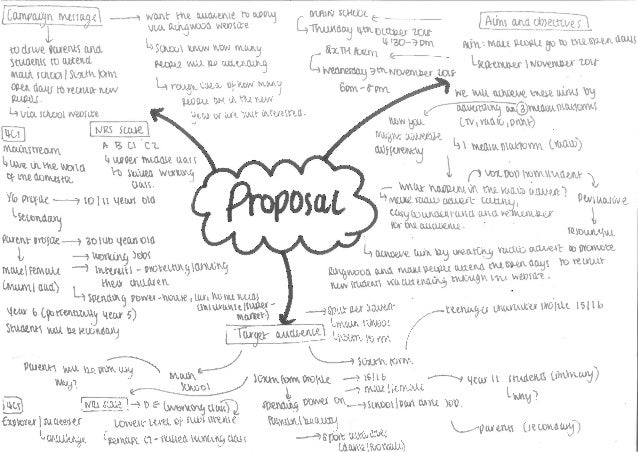 Campaign message
want the audience to apply
via Ringwood website
↳ School know how many
people will be attending
↳ rough idea of how many
people are in the new
year or are just interested.
to drive parents and
students to attend
main school / Sixth form
open days to recruit new
pupils.
↳ via school website
MAIN SCHOOL
↳ Thursday 4th October 2018
4:30-7pm
SIXTH FORM
↳ Wednesday 7th November 2018
6pm-8pm
Aims and objectives
Aim: Make people go to the open days
↳ September / November 2018
we will achieve these aims by
advertising on 3 media platforms
(TV, radio, print)
↳ 1 media platform (radio)
How you
might advertise
differently
↳ vox pop from student
Persuasive
What happens in the radio advert?
↳ make radio advert catchy,
easy to understand and remember
for the audience.
↳ achieve aim by creating radio advert to promote
Ringwood and make people attend the open days to recruit
new student via attending through the website.
Proposal
4Cs
mainstream
↳ live in the world
of the domestic.
NRS Scale
A B C1 C2
↳ upper middle class
to skilled working
class.
Y6 profile → 10/11 years old
↳ Secondary
Parent profile → 30/40 year old
→ working Jobs
→ interests - protecting/driving
their children
Male/Female
(mum/dad)
↳ Spending power - house, car, home needs
(insurance/super-
market)
Year 6 (potentially year 5)
Students will be secondary
Target audience
Split per advert
↳ main school
↳ sixth form
Sixth form
teenager character profile 15/16
Parents will be primary
Why?
Main
School
Sixth form profile → 15/16
→ male/female
→ School/part time job.
Year 11 students (primary)
↳ Why?
parents (secondary)
4Cs
Explorer/
↳ challenge
NRS Scale → D E (working class)
Lowest level of subsistence
perhaps C2 - skilled working class
Spending power on
fashion/beauty
→ sport activities
(dance/football)